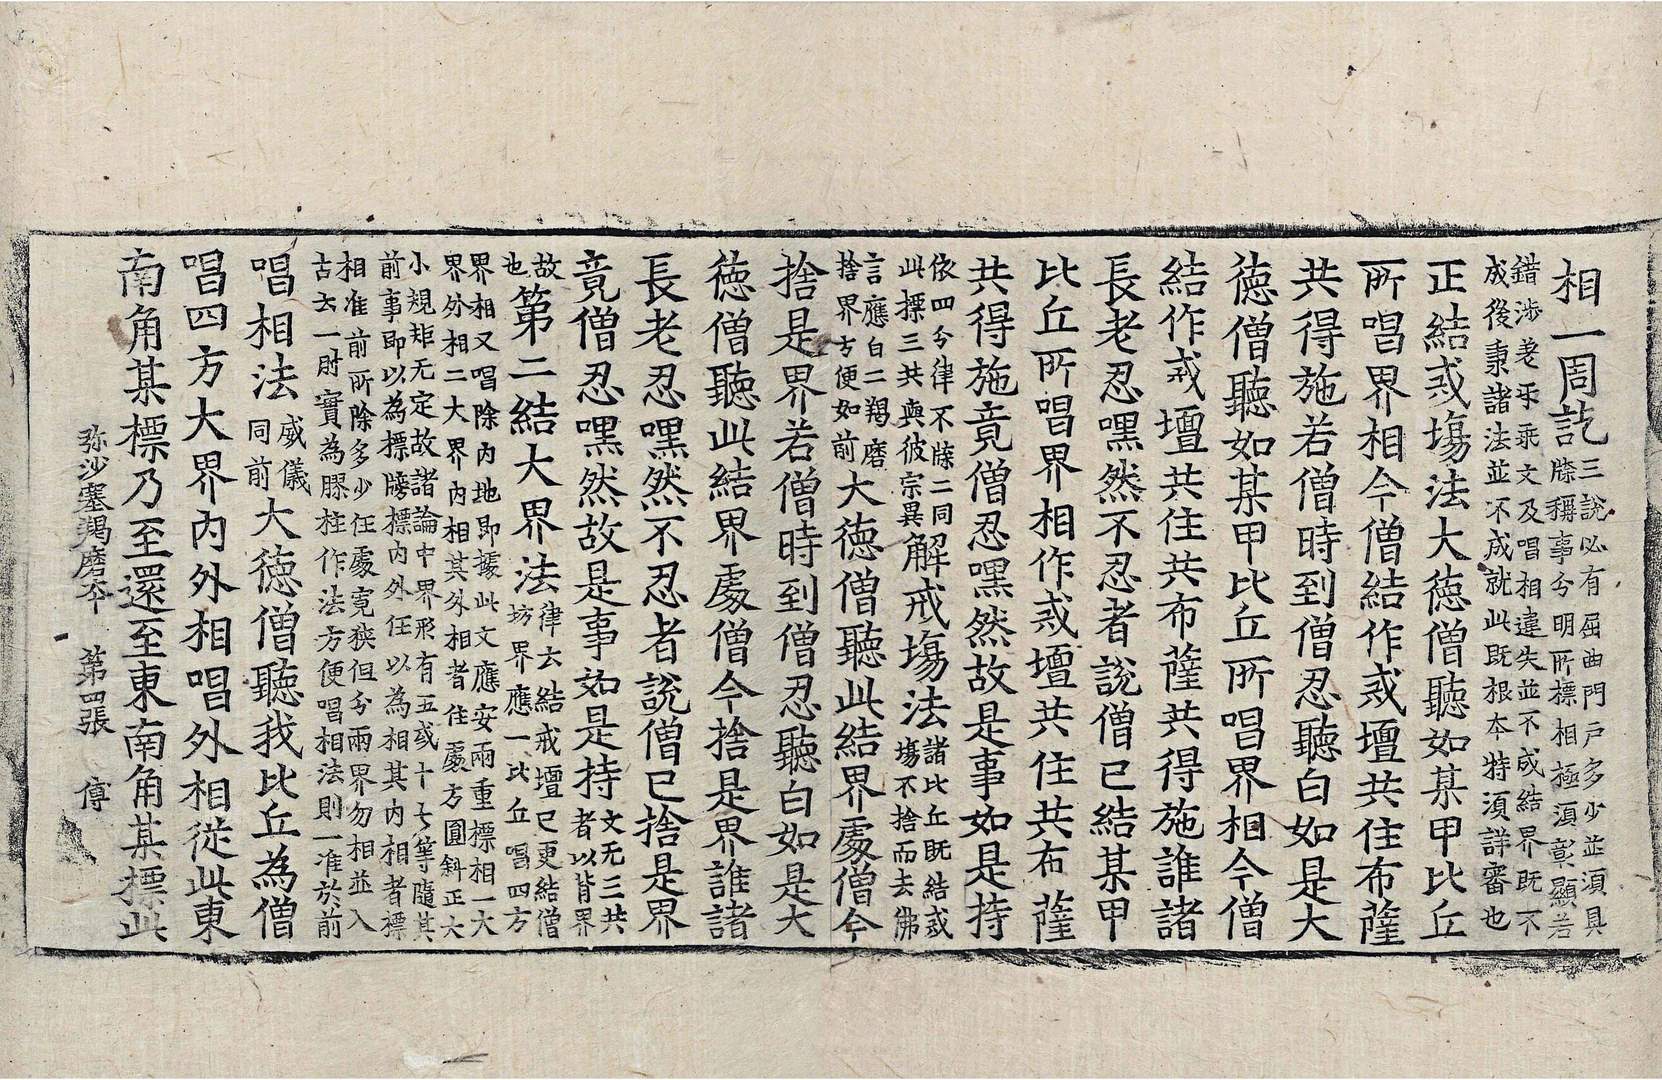 相一周訖三說必有屈曲門戶多少並須具
牒稱事分明所標相極須彰顯若
錯涉差乖文及唱相違失並不成結界既不
成後秉諸法並不成就此既根本特須詳審也
正結戒場法大德僧聽如某甲比丘
所唱界相今僧結作戒壇共住布薩
共得施若僧時到僧忍聽白如是大
德僧聽如某甲比丘所唱界相今僧
結作戒壇共住共布薩共得施誰諸
長老忍嘿然不忍者說僧已結某甲
比丘所唱界相作戒壇共住共布薩
共得施竟僧忍嘿然故是事如是持
依四分律不牒二同
此標三共與彼宗異解戒場法諸比丘既結戒
場不捨而去佛
言應白二羯磨
捨界方便如前大德僧聽此結界處僧今
捨是界若僧時到僧忍聽白如是大
德僧聽此結界處僧今捨是界誰諸
長老忍嘿然不忍者說僧已捨是界
竟僧忍嘿然故是事如是持文无三共
者以背界
故
也第二結大界法律云結戒壇已更結僧
坊界應一比丘唱四方
界相又唱除內地即據此文應安兩重標相一大
界外相二大界內相其外相者任處方圓斜正大
小規矩无定故諸論中界形有五或十七等隨其
前事即以為標牓標內外任以為相其內相者標
相准前所除多少任處寬狹但分兩界勿相並入
古云一肘實為膠柱作法方便唱相法則一准於前
唱相法威儀
同前大德僧聽我比丘為僧
唱四方大界內外相唱外相從此東
南角某標乃至還至東南角某標此
弥沙塞羯磨本 第四張 傅